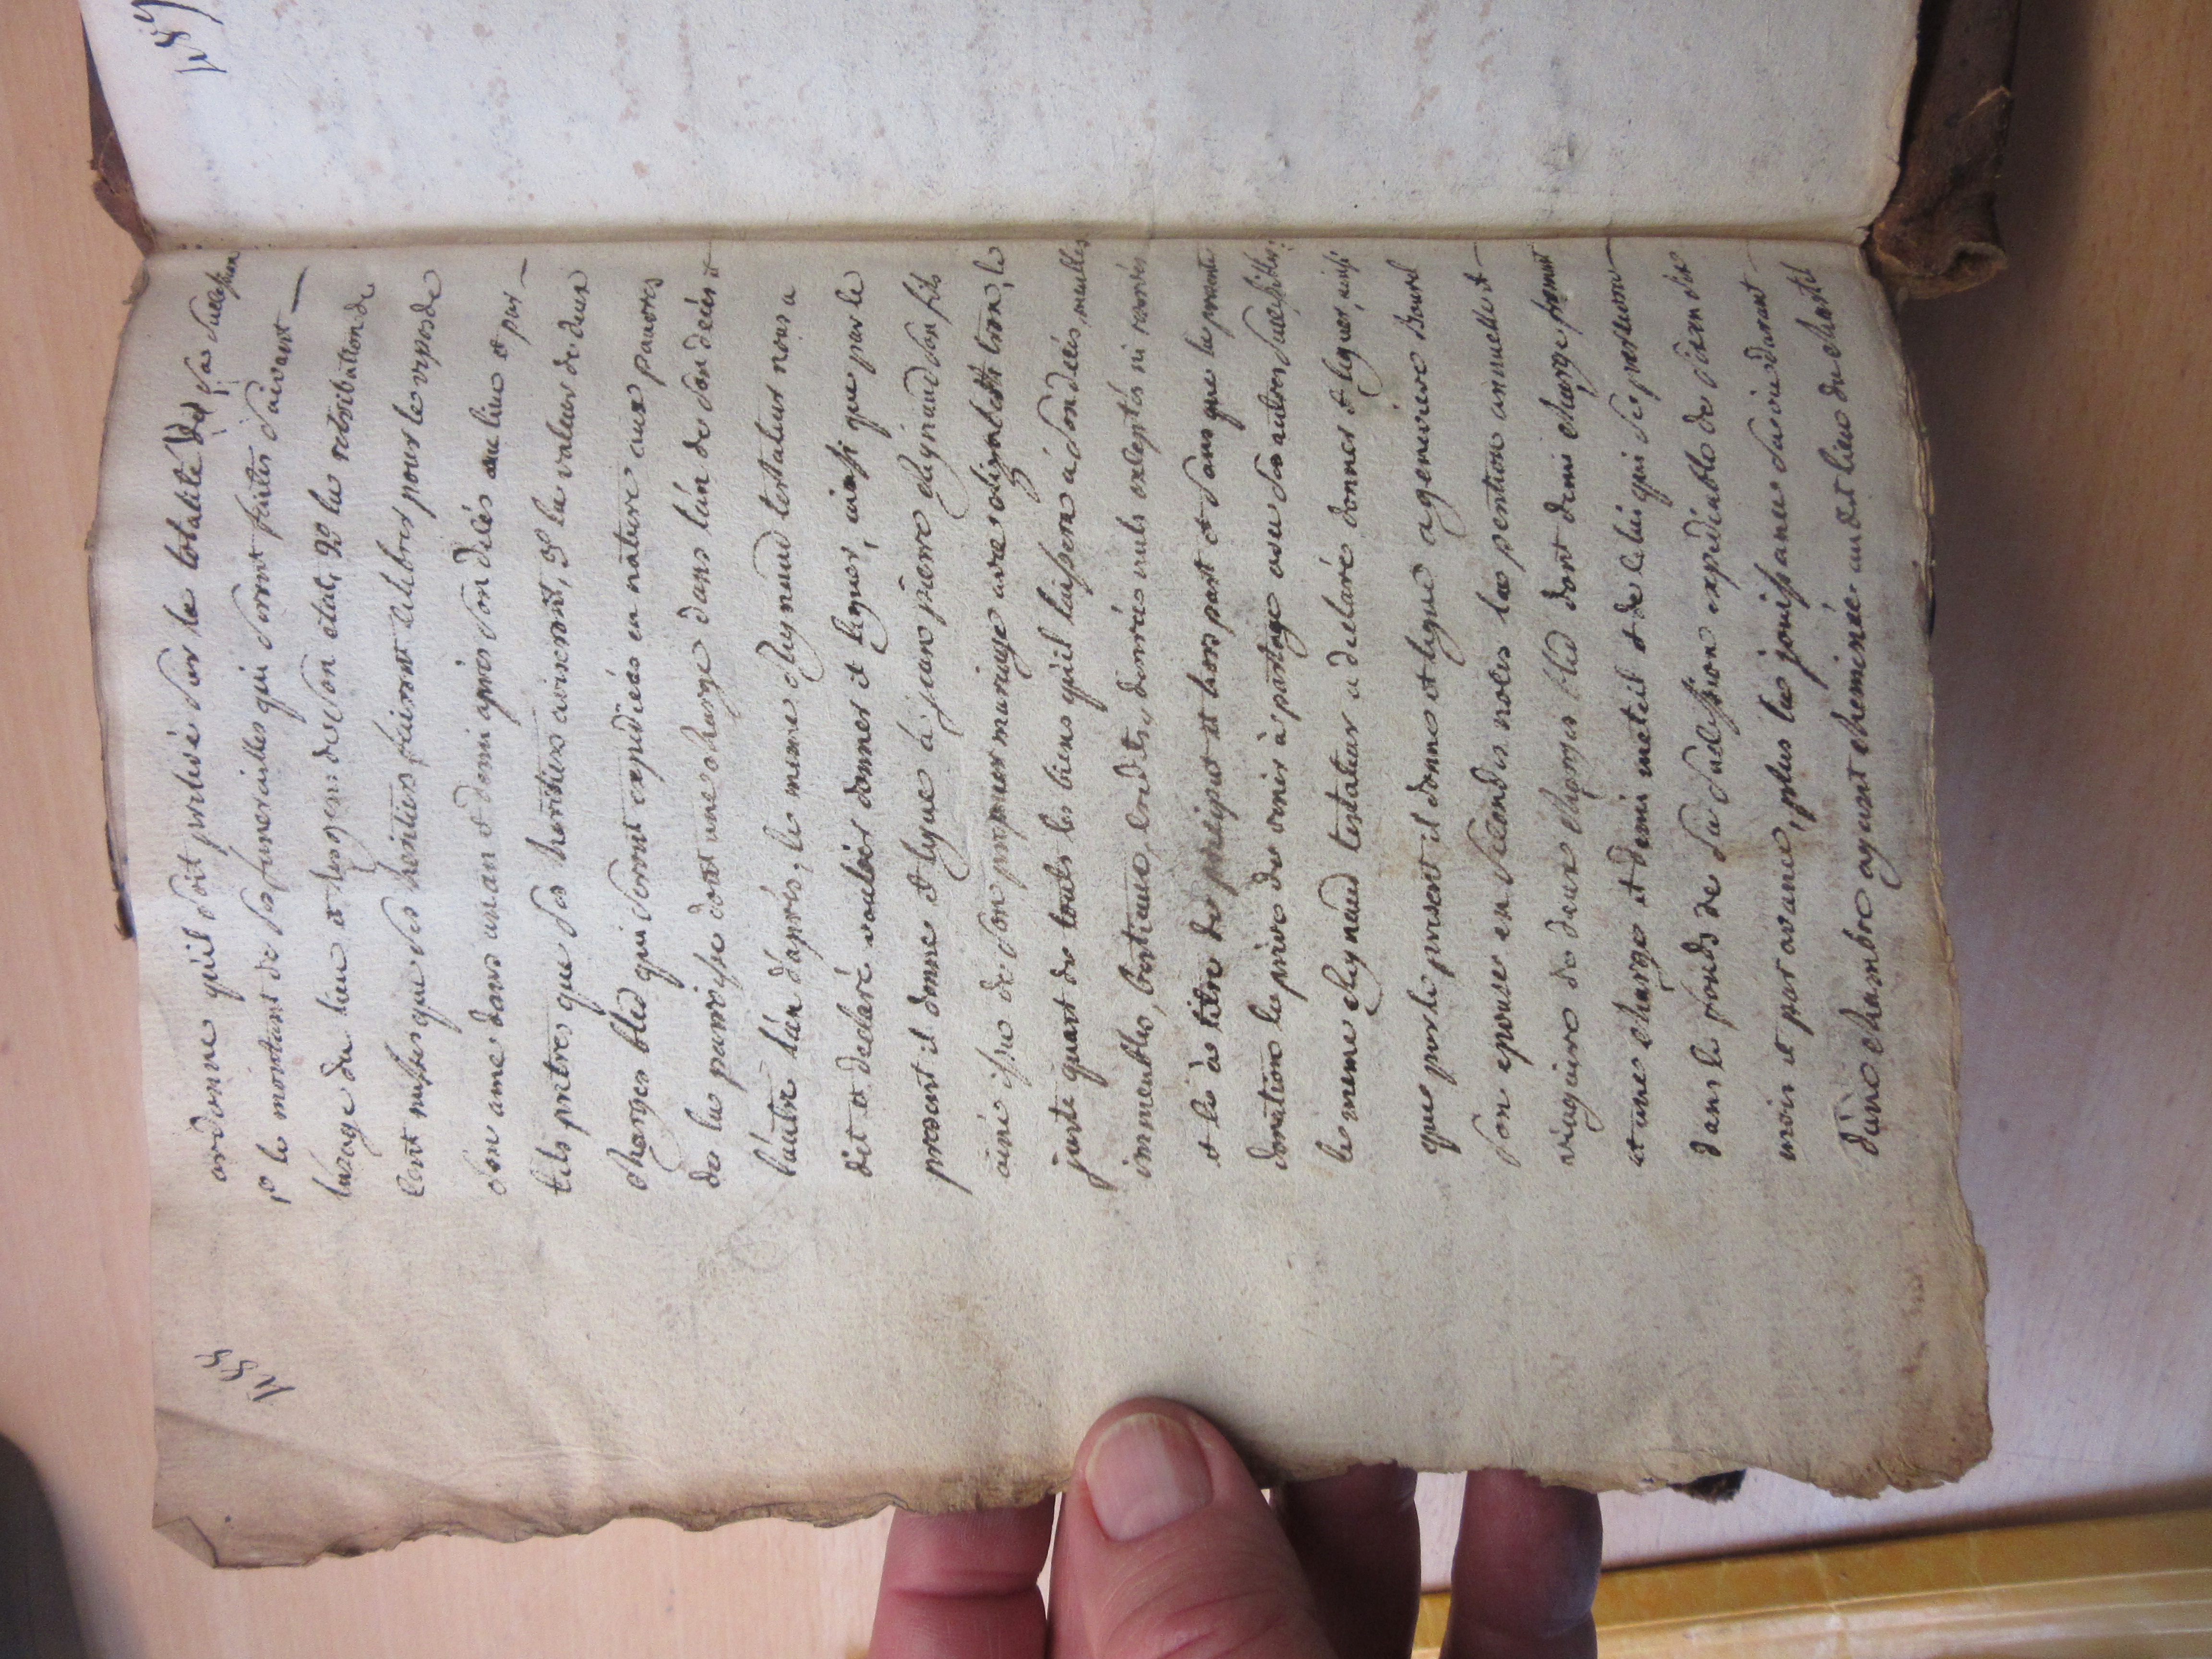 ordonne qu'il soit prelevé sur la totalité de sa succession
1º le montant de ses funerailles qui seront faites suivant
lusage du lieu et les gens de son etat, 2º la retribution de
cent messes que ses heritiers fairont celebrer pour le repos de
son ame dans un an et demi après son decés au lieu & par
tels pretres que ses heritiers aviseront, 3º la valeur de deux
charges bled qui seront expediées en nature aux pauvres
de la paroisse dont une charge dans l'an de son decés et
l'autre l'an d'après, le meme Reynaud testateur nous a
dit et declaré vouloir donner et leguer, ainsi que par le
present il donne et legue à jean pierre Reynaud son fils
ainé issu de son premier mariage avec lion, le
juste quart de touts les biens qu'il laissera à son decés, meubles
immeubles, bestiaux, credits, danrées nuls exceptés ni reservés
et le à titre de préciput et hors part et sans que la presente
donation le prive de venir à partage avec ses autres successibles:
le meme Reynaud testateur a declaré donner et leguer, ainsi
que par le present il donne et legue a genevieve Bourel
son epouse en secondes noces la pention annuelle et
viagaire de deux charges bled dont demi charge froment
et une charge et demi meteil et de celui qui se perseverra
dans le fonds de sa succession expediable de six en six
mois et par avance, plus la jouissance sa vie durant
d'une chambre ayant cheminée au dit lieu du